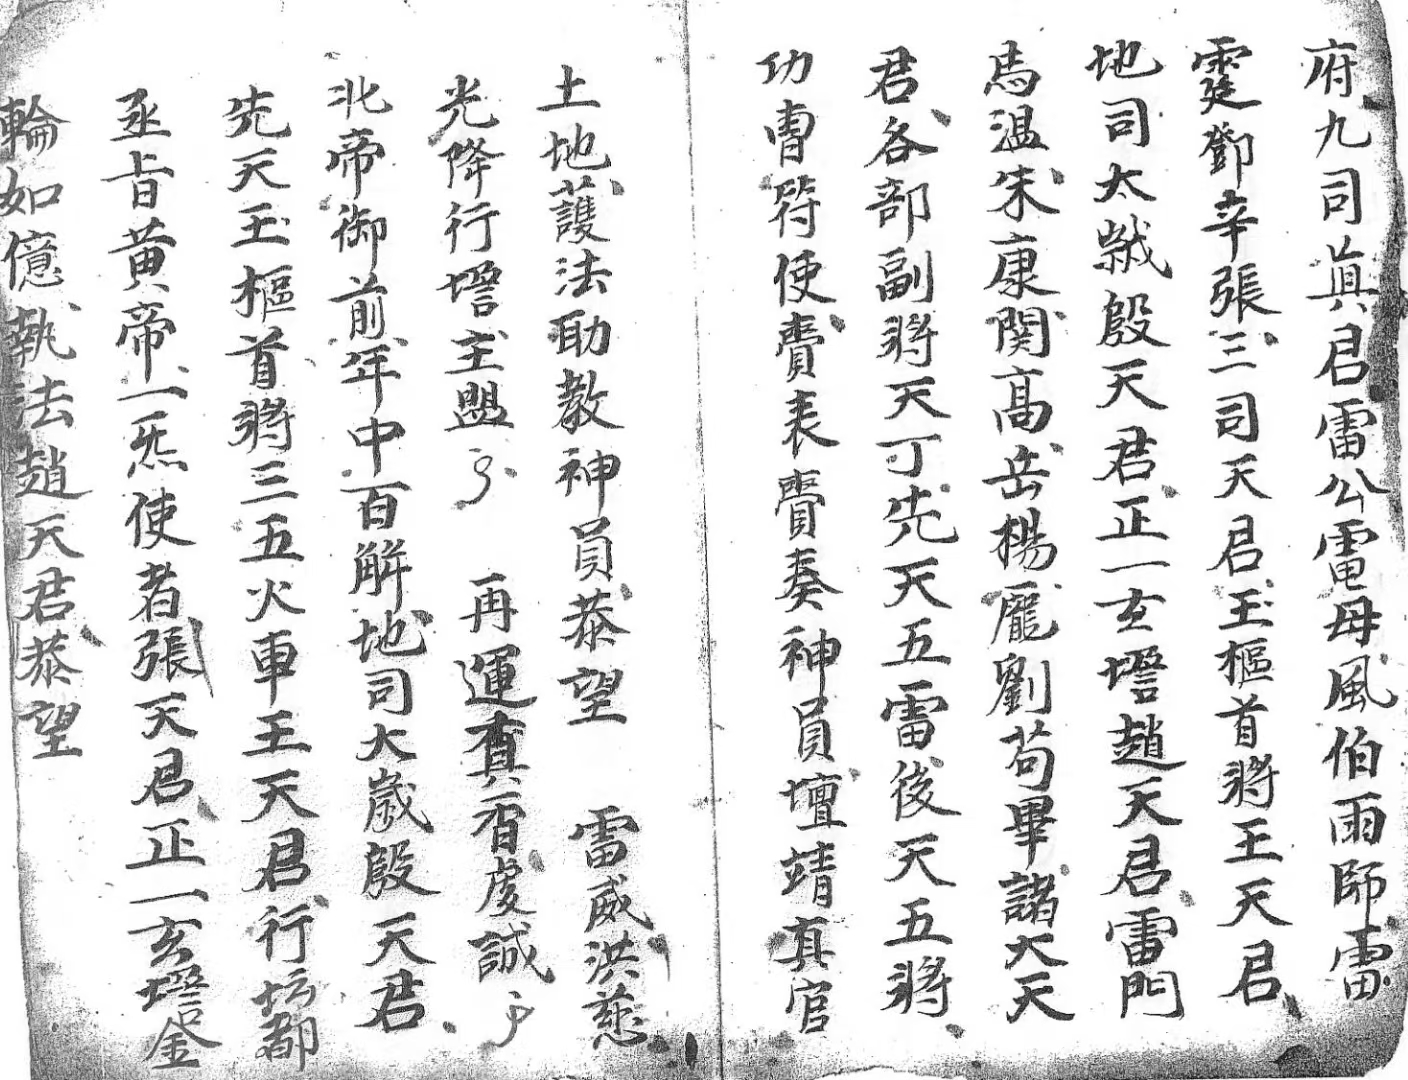 府九司眞君雷公電母風伯雨師雷
霆鄧辛張三司天君玉樞首將王天君
地司太歲殷天君正一玄壇趙天君雷門
馬溫朱康関高岳楊龐劉苟畢諸大天
君各部副將天丁先天五雷後天五將
功曹符使賫表賫奏神員壇靖真官
土地護法助教神員恭望 雷威洪慈
光降行壇主盟 再運真香虔誠
北帝御前年中百解地司大歲殷天君
先天玉樞首將三五火車王天君行坛都
丞㫖黄帝一炁使者張天君正一玄壇金
輪如億執法趙天君恭望